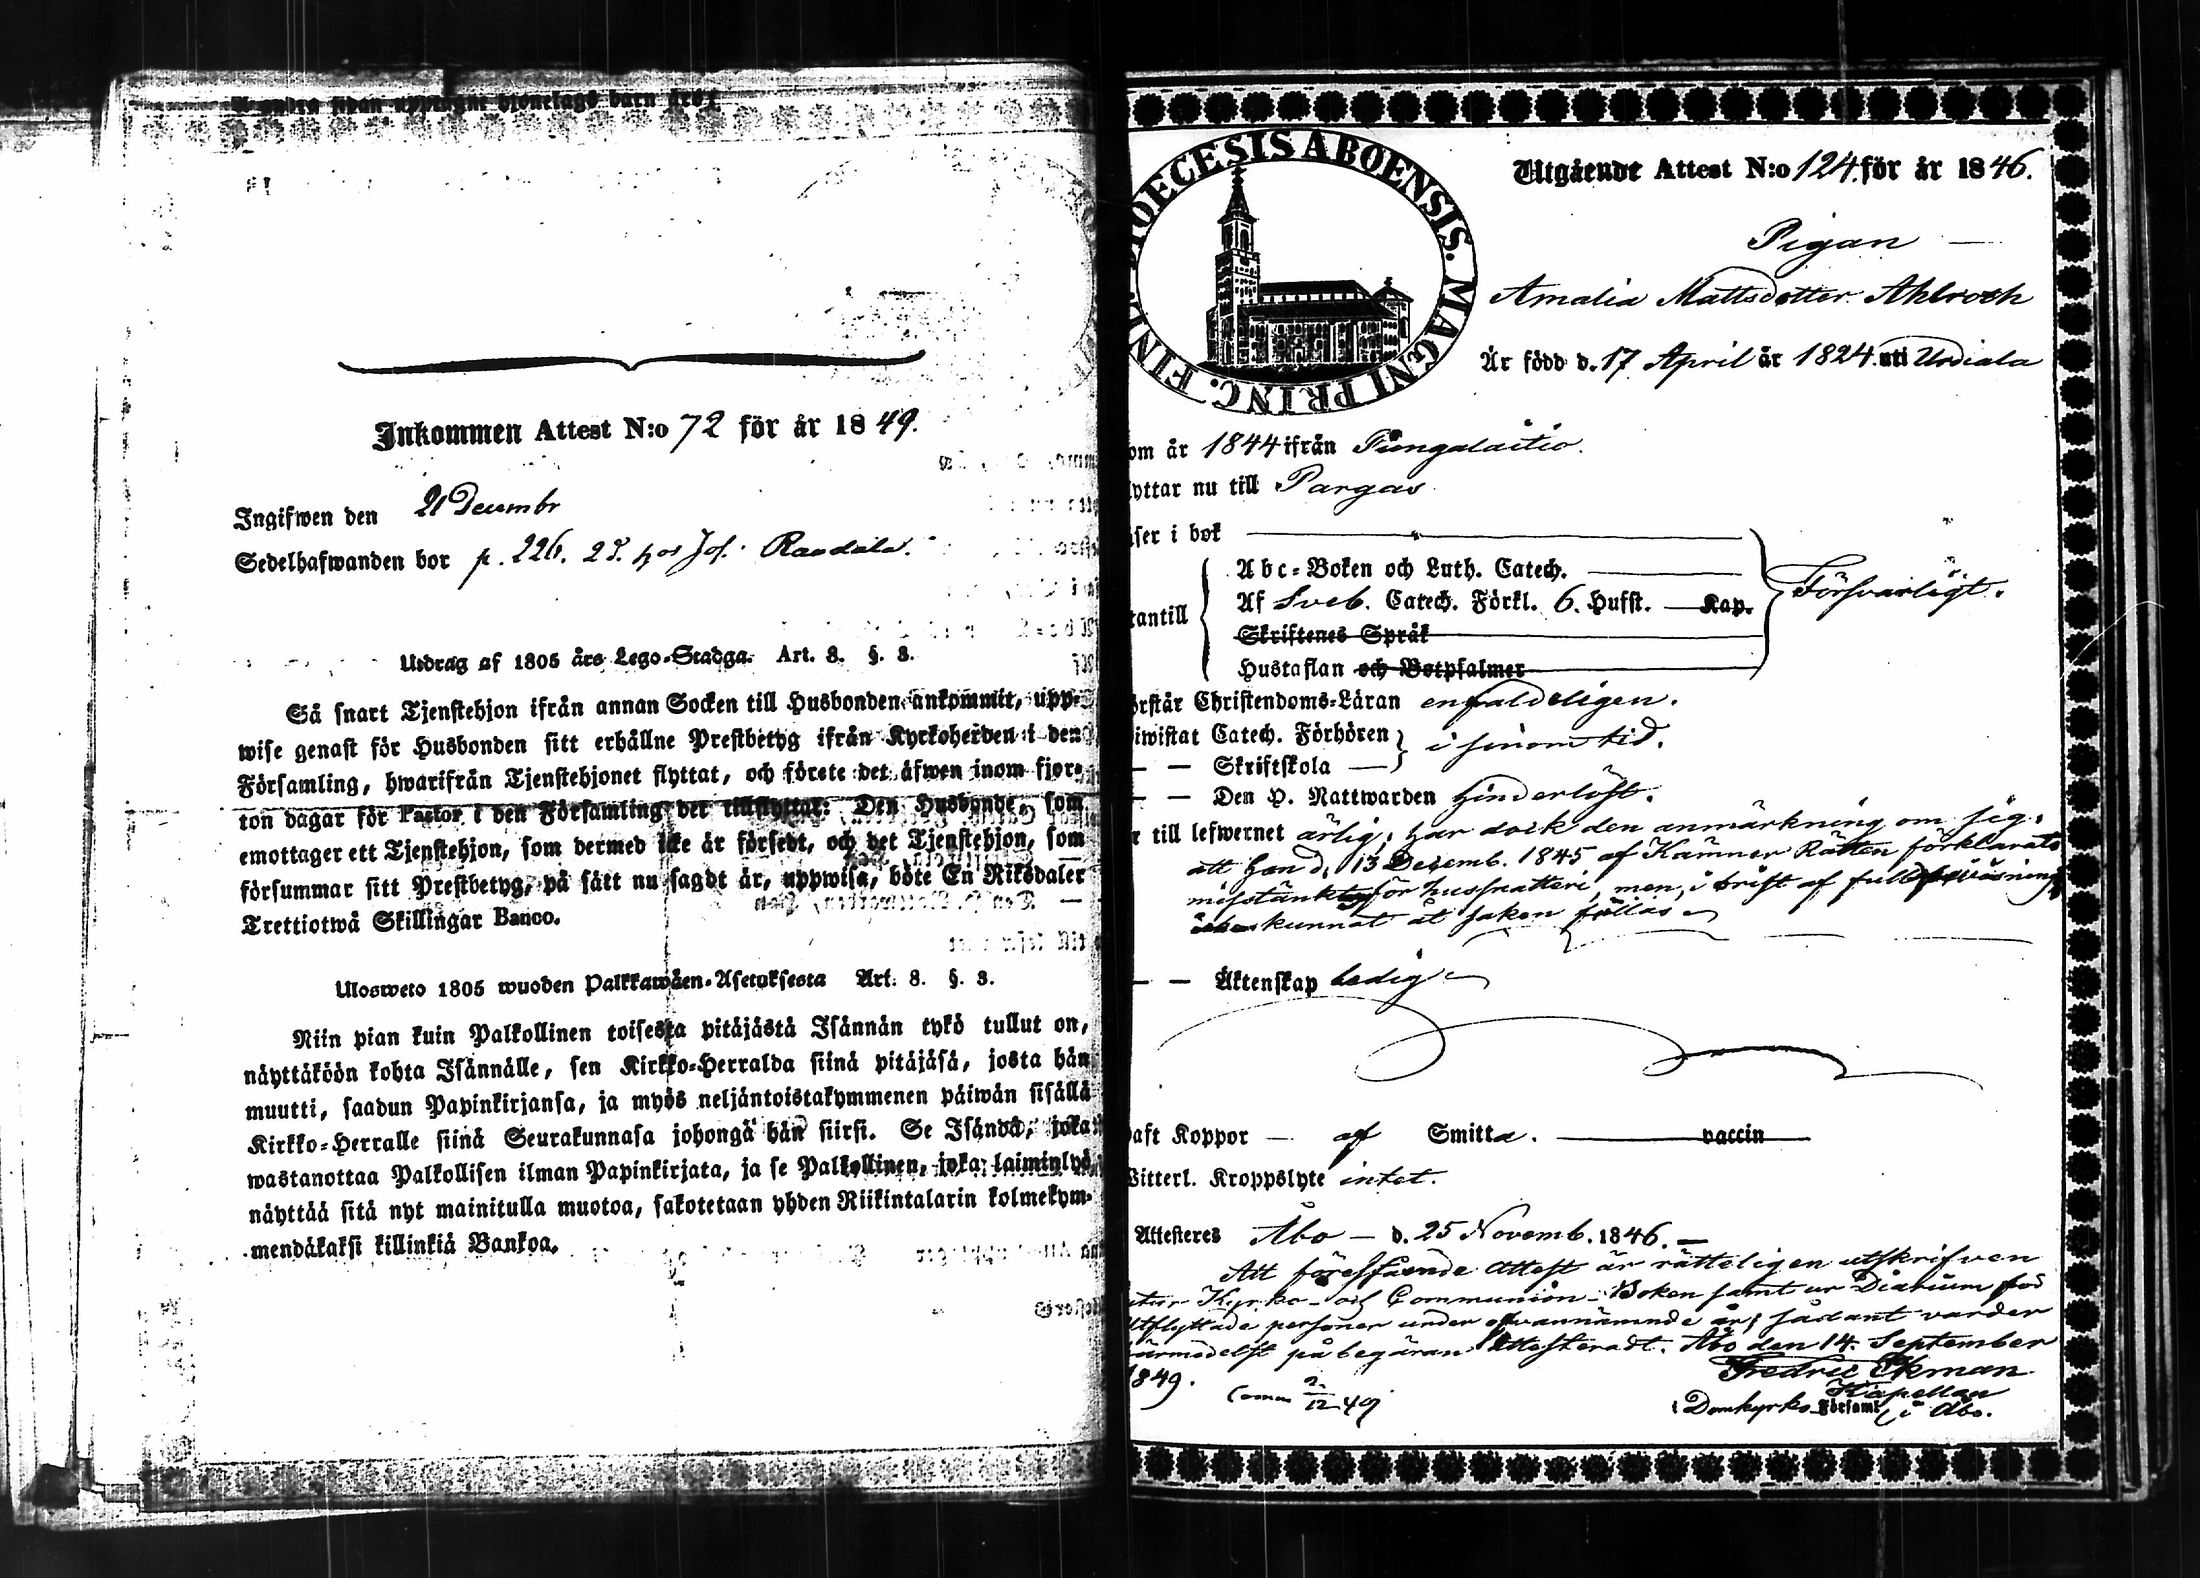 Å andra sidan upptagne hjonelags barn äro:
Inkommen Attest N:o 72 för år 1849.
Ingifwen den 21 Decembr
Sedelhafwanden bor p. 226. 25. hos Jos. Randala.
Utdrag af 1805 års Lego-Stadga. Art. 8. §. 3.
Så snart Tjenstehjon ifrån annan Socken till Husbonden ankommit, upp-
wise genast för Husbonden sitt erhållne Prestbetyg ifrån Kyrkoherden i den
Församling, hwarifrån Tjenstehjonet flyttat, och förete det äfwen inom fjor-
ton dagar för Pastor i den Församling det tillflyttar: Den Husbonde, som
emottager ett Tjenstehjon, som dermed icke är försedt, och det Tjenstehjon, som
försummar sitt Prestbetyg, på sätt nu sagdt är, uppwisa, böte En Riksdaler
Trettiotwå Skillingar Banco.
Ulosweto 1805 wuoden Palkkawäen-Asetuksesta Art. 8. §. 3.
Niin pian kuin Palkollinen toisesta pitäjästä Isännän tykö tullut on,
näyttäköön kohta Isännälle, sen Kirkko-Herralda siinä pitäjäsä, josta hän
muutti, saadun Papinkirjansa, ja myös neljäntoistakymmenen päiwän sisällä
Kirkko-Herralle siinä Seurakunnasa johongä hän siirsi. Se Isändä, joka
wastanottaa Palkollisen ilman Papinkirjata, ja se Palkollinen, joka laiminlyö
näyttää sitä nyt mainitulla muotoa, sakotetaan yhden Riikintalarin kolmekym-
mendäkaksi killinkiä Bankoa.
DIOECESIS ABOENSIS. MAGNI PRINC. FINL.
Utgående Attest N:o 124. för år 1846.
Pigan —
Amalia Mattsdotter Ahlroth
Är född d. 17 April år 1824. uti Urdiala
om år 1844 ifrån Pungalaitio.
lyttar nu till Pargas
äser i bok
Abc-Boken och Luth. Catech.
Af Sveb. Catech. Förkl. 6. Hufst. — Kap.
Försvarligt.
tantill
Skriftenes Språk
Hustaflan och Botpsalmer
örstår Christendoms-Läran enfaldeligen.
iwistat Catech. Förhören
i sinom tid.
— — Skriftskola —
— — Den H. Nattwarden hinderlöst.
r till lefwernet ärlig; har dock den anmärkning om sig,
att han d. 13 Decemb. 1845 af Kämner Rätten förklarats
misstänkt för husnatteri, men, i brist af full bevisning
icke kunnat åt saken fällas
— — Äktenskap ledig
aft Koppor — af Smitta. — vaccin
Witterl. Kroppslyte intet.
Attesteres Åbo — d. 25 Novemb. 1846. —
Att förestående Attest är rätteligen utskrifven
utur Kyrko- och Communion-Boken samt ur Diarium öfver
Utflyttade personer under ofvannämnde år; sådant varder
härmedelst på begäran Attesteradt. Åbo den 14. September
1849.
Fredric Ekman
Comm 2/12 49
Kapellan
i Domkyrko Församl. i Åbo.